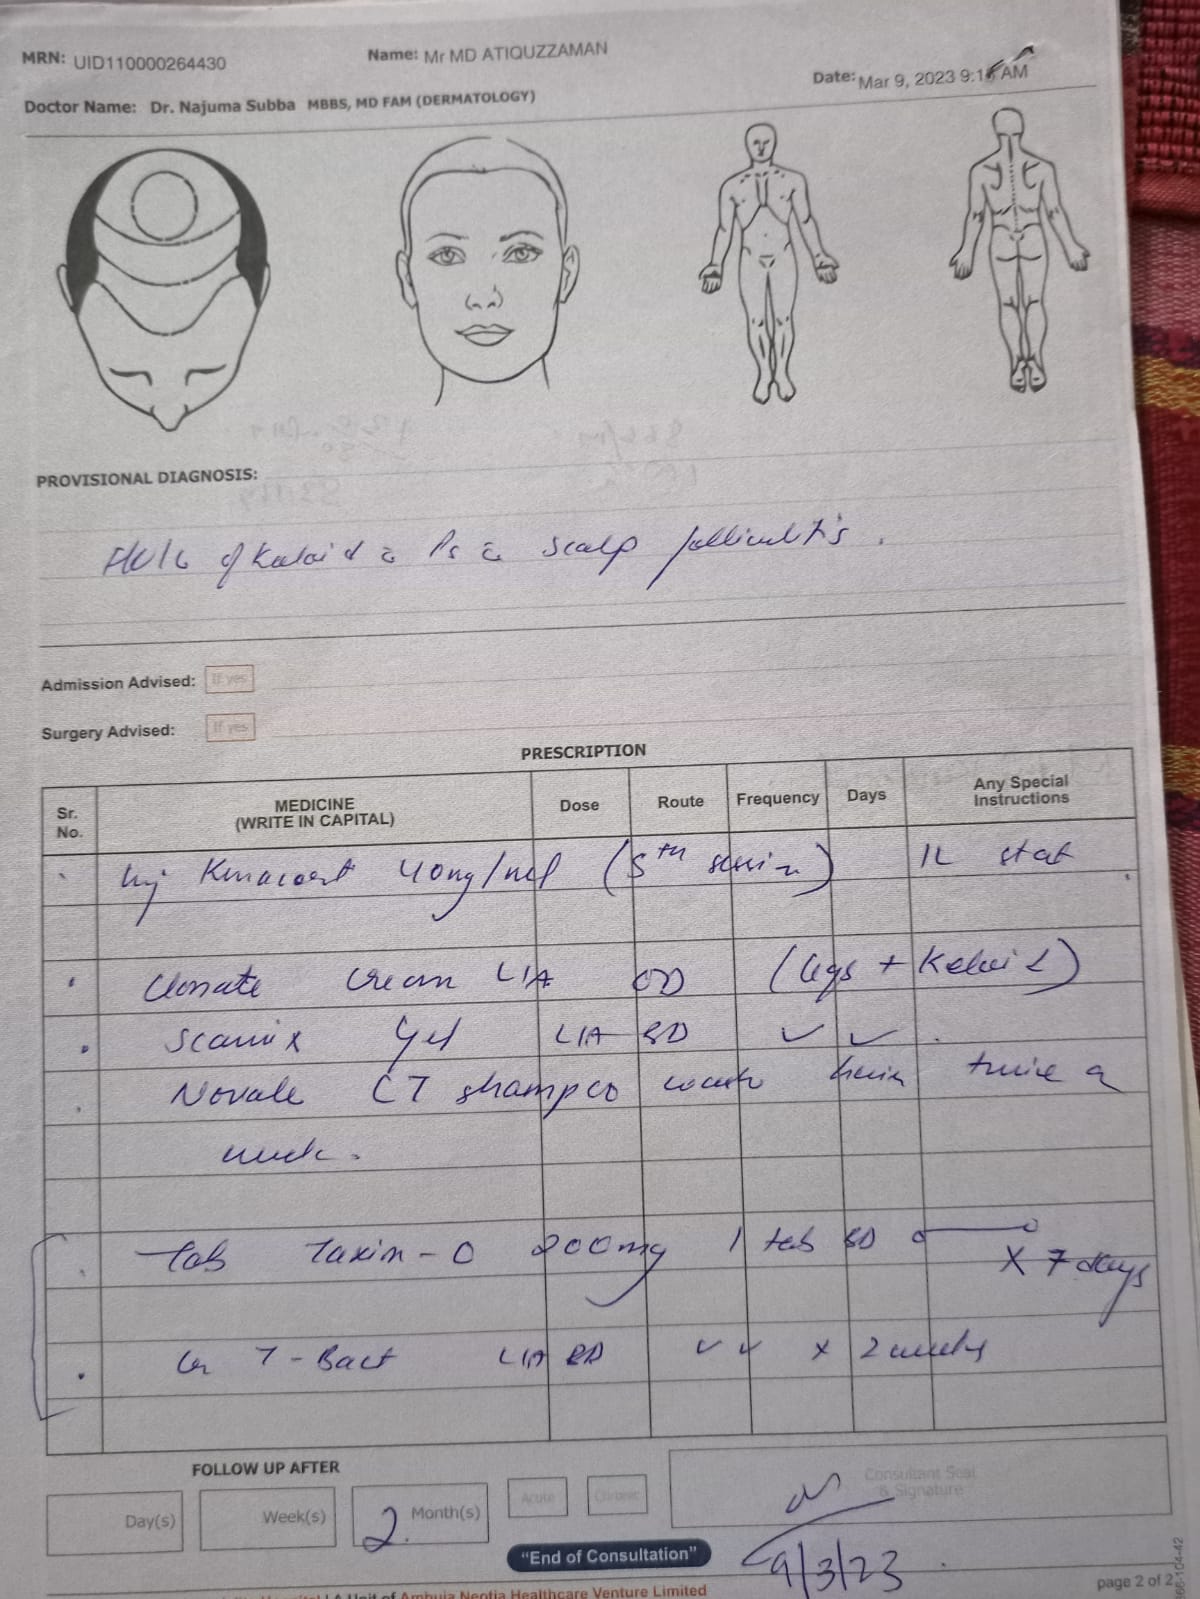 MRN: UID110000264430
Name: Mr MD ATIQUZZAMAN
Date: Mar 9, 2023 9:1 AM
Doctor Name: Dr. Najuma Subba MBBS, MD FAM (DERMATOLOGY)
PROVISIONAL DIAGNOSIS:
of Keloid c Ps c scalp folliculitis.
Admission Advised: If yes
Surgery Advised: If yes
PRESCRIPTION
Sr. No. MEDICINE (WRITE IN CAPITAL) Dose Route Frequency Days Any Special Instructions
Inj Kenacort 40mg/ml (5th session) IL stat
cream L/A OD (legs + Keloid)
Gel L/A BD ✓ ✓
CT shampoo wash twice a
week.
Tab Taxim-O 200mg 1 tab BD x 7 days
T-Bact L/A BD ✓✓ x 2 weeks
FOLLOW UP AFTER
Day(s) Week(s) 2 Month(s) Acute Chronic Consultant Seal & Signature
"End of Consultation"
9/3/23
A Unit of Ambuja Neotia Healthcare Venture Limited
page 2 of 2